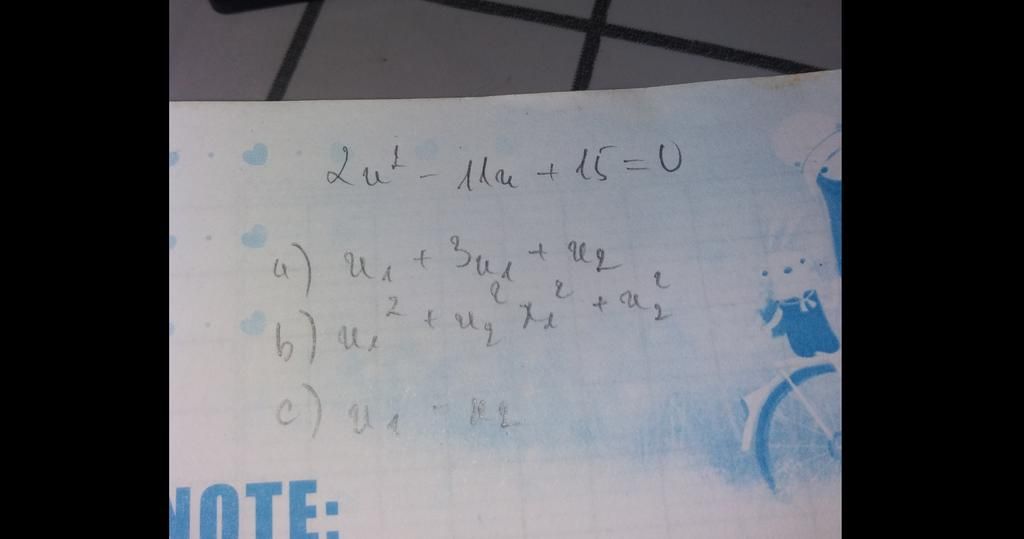 2x² - 11x + 15 = 0
a) x₁ + 3x₁ + x₂
b) x₁² + x₂² x₁² + x₂²
c) x₁ - x₂
NOTE: